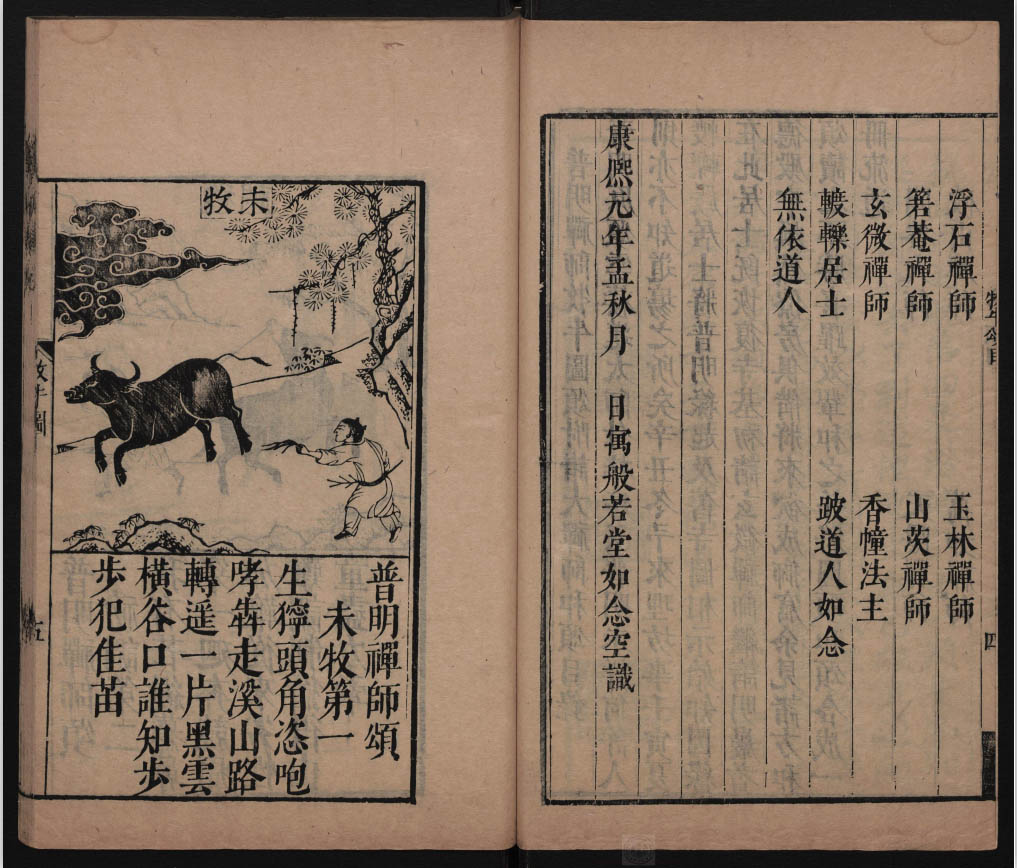 浮石禪師 玉林禪師
箬菴禪師 山茨禪師
玄微禪師 香幢法主
轗轢居士 跛道人如念
無依道人
康熈元年孟秋月 日寓般若堂如念空識
四
未牧
普明禪師頌
未牧第一
生獰頭角恣咆
哮犇走溪山路
轉遥一片黑雲
橫谷口誰知步
步犯佳苗
牧牛圖
五